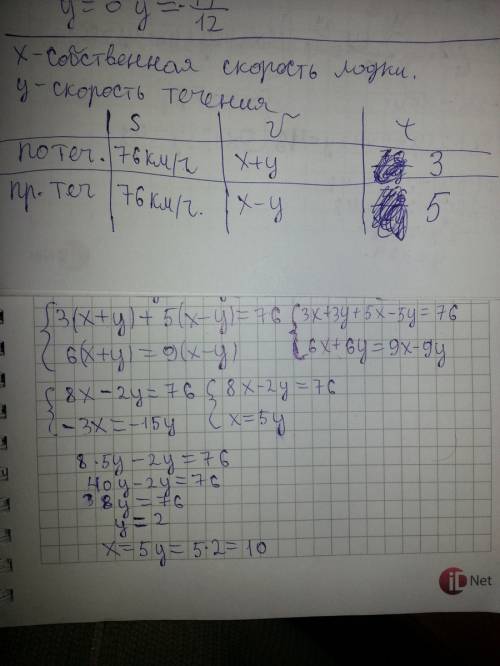 y=0 y=-11/12
x-собственная скорость лодки.
y-скорость течения
S v t
по теч. 76 км/ч x+y 3
пр. теч 76 км/ч. x-y 5
{3(x+y)+5(x-y)=76 {3x+3y+5x-5y=76
6(x+y)=9(x-y) 6x+6y=9x-9y
{8x-2y=76 {8x-2y=76
-3x=-15y x=5y
8·5y-2y=76
40y-2y=76
38y=76
y=2
x=5y=5·2=10
iD Net